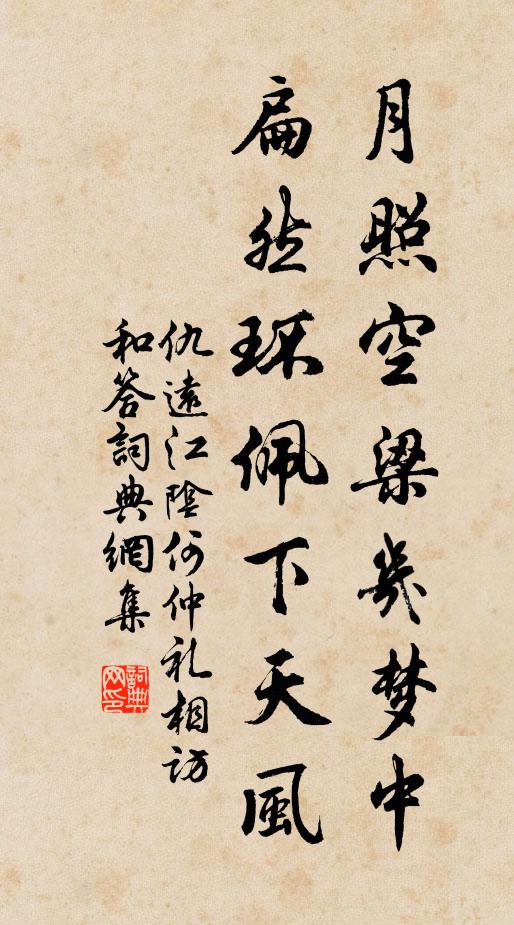 月照空梁幾梦中
扁然环佩下天風
仇遠江陰何仲礼相訪
和答詞典網集
詞典网印